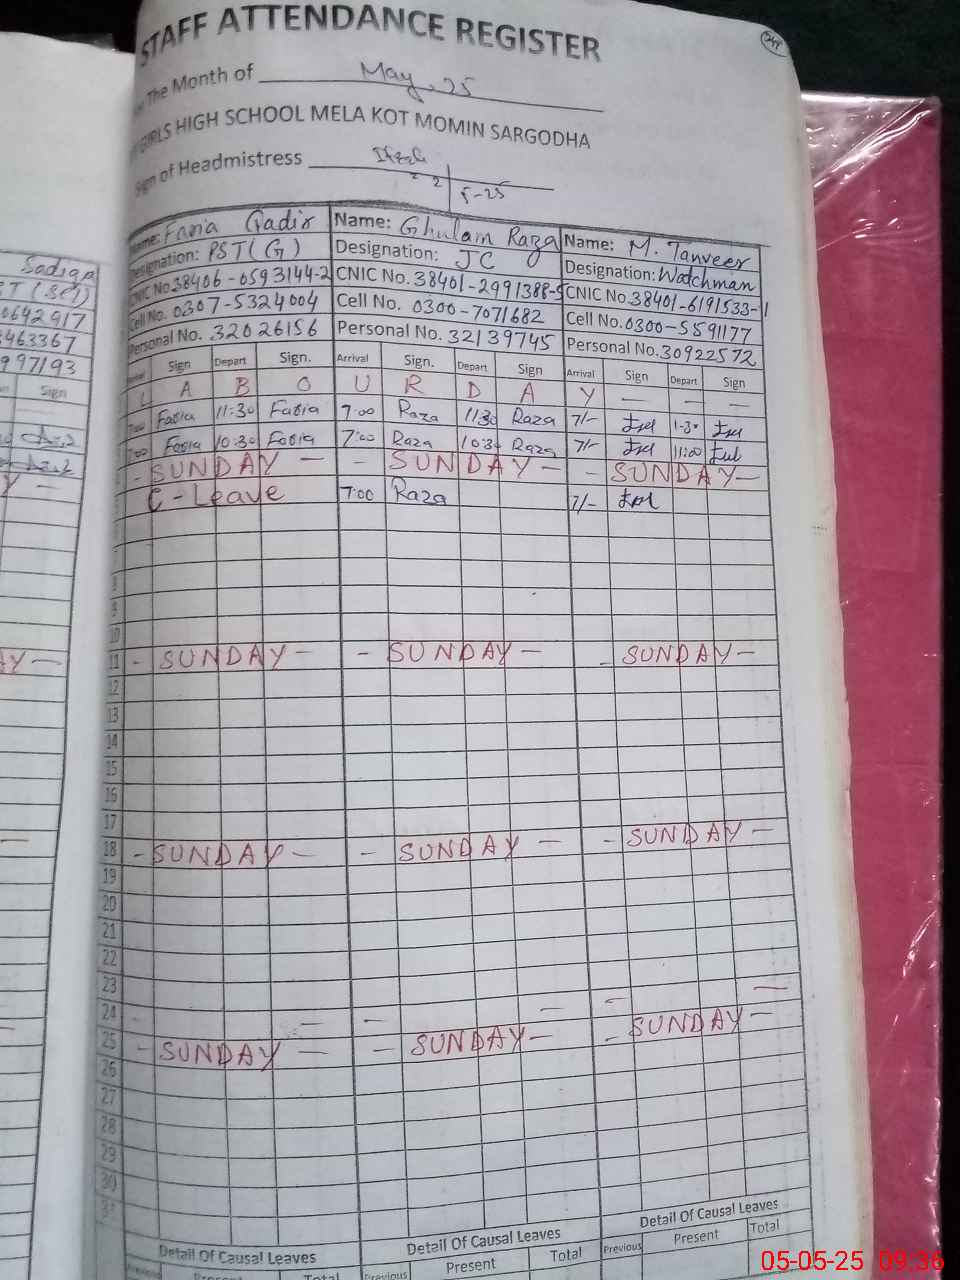 STAFF ATTENDANCE REGISTER
The Month of May, 25
GIRLS HIGH SCHOOL MELA KOT MOMIN SARGODHA
Sign of Headmistress
2 5-25
Name: Faria Qadir Name: Ghulam Raza Name: M. Tanveer
Designation: PST (G) Designation: JC Designation: Watchman
CNIC No 38406-0593144-2 CNIC No. 38401-2991388-5 CNIC No. 38401-6191533-1
Cell No. 0307-5324004 Cell No. 0300-7071682 Cell No. 0300-5591177
Personal No. 32026156 Personal No. 32139745 Personal No. 30922572
Sign Depart Sign. Arrival Sign. Depart Sign Arrival Sign Depart. Sign
L A B O U R D A Y — — —
7:00 Faria 11:30 Faria 7:00 Raza 11:30 Raza 7/- 1-30
7:00 Faria 10:30 Faria 7:00 Raza 10:30 Raza 7/- 11:00
- SUNDAY - - SUNDAY - - SUNDAY -
C-Leave 7:00 Raza 7/-
8
9
10
11 - SUNDAY - - SUNDAY - - SUNDAY -
12
13
14
15
16
17
18 - SUNDAY - - SUNDAY - - SUNDAY -
19
20
21
22
23
24 - — - — - —
25 - SUNDAY - - SUNDAY - - SUNDAY -
26
27
28
29
30
31
Detail Of Causal Leaves Detail Of Causal Leaves Detail Of Causal Leaves
Previous Present Total Previous Present Total Previous Present Total
Sadiqa
ST (SCI)
0642917
463367
997193
Sign
05-05-25 09:36